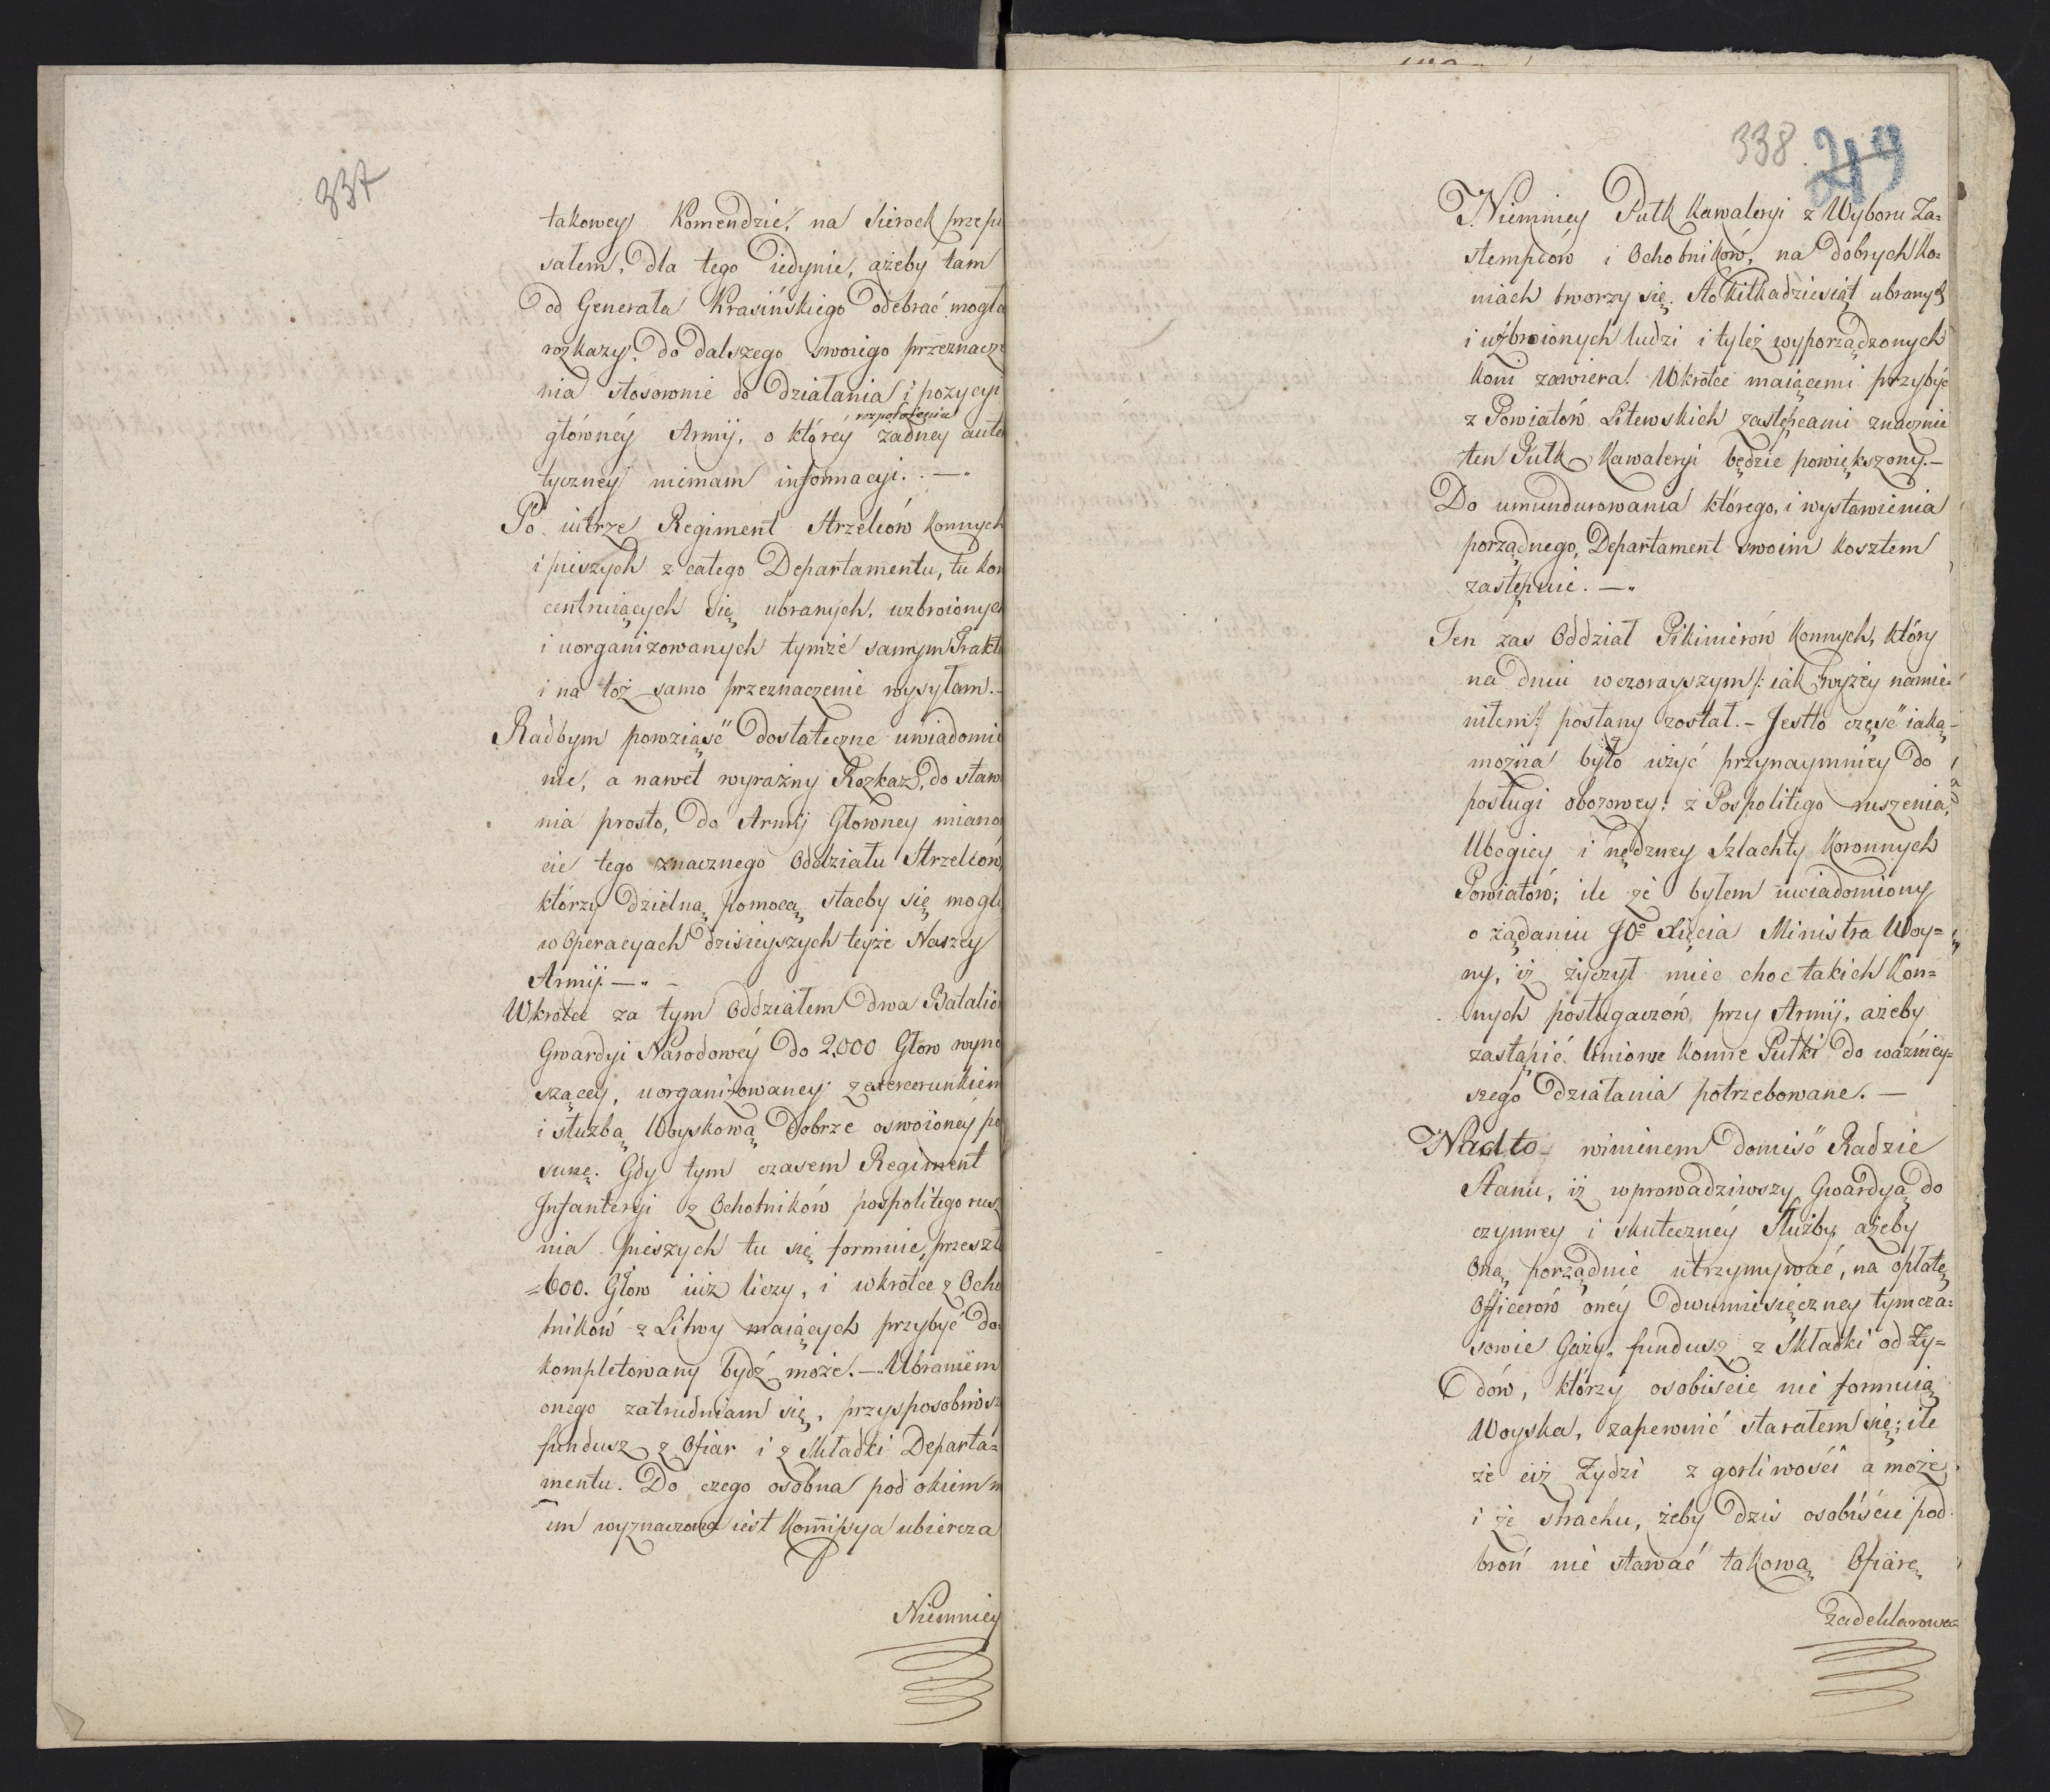 337
takowey Komendzie, na Sierock przepi
sałem, dla tego iedynie, ażeby tam
od Generała Krasińskiego odebrać mogła
rozkazy, do dalszego swoiego przeznacze
nia stosownie do działania i pozycyi
rozpołożenia
główney Armij, o którey żadney auten
tyczney niemam informacyi. —
Po iutrze Regiment Strzelców Konnych
i pieszych z całego Departamentu, tu kon
centruiących się ubranych, uzbroionych
i uorganizowanych tymże samym Trakte
i na toż samo przeznaczenie wysyłam.-
Radbym powziąść dostateczne uwiadomie
nie, a nawet wyraźny Rozkaz, do staw
nia prosto, do Armij Główney miano
cie tego znacznego Oddziału Strzelców
którzy dzielną pomocą staćby się mogli
w Operacyach dzisieyszych teyże Naszey
Armij. — -
Wkrótce za tym Oddziałem dwa Batalio
Gwardyi Narodowéy do 2.000 Głów wyno
szącey, uorganizowaney, z exercerunkiem
i służbą Woyskową dobrze oswoioney po
sunę. Gdy tym czasem Regiment
Infanteryi z Ochotników pospolitego rusz
nia pieszych tu się formuie, przeszło
=600. Głów iuż liczy, i wkrótce z Ocho
tników z Litwy maiących przybyć do=
kompletowany bydź może. — Ubraniem
onego zatrudniam się, przysposobiwsz
fundusz z Ofiar i z Składki Departa=
mentu. Do czego osobna pod okiem m
im wyznaczona iest Kommissya ubiercza
Niemniey
338. 249
Niemniey Pułk Kawaleryi z Wyboru Za=
stempców i Ochotników, na dobrych Ko=
niach tworzy się. Sto kilkadziesiąt ubranych
i uzbroionych ludzi i tyleż wyporządzonych
koni zawiera. Wkrótce maiącemi przybyć
z Powiatów Litewskich zastępcami znacznie
ten Pułk Kawaleryi będzie powiększony.—
Do umundurowania którego, i wystawienia
porządnego, Departament swoim kosztem
zastępuie. —
Ten zas Oddział Pikinierów Konnych, który
na dniu wczorayszym /: iak wyżey namie=
niłem :/ posłany został. - Jestto część iaką
można było użyć przynaymniey do
posługi obozowey: z Pospolitego ruszenia,
Ubogiey i nędzney Szlachty Koronnych
Powiatów; ile że byłem uwiadomiony
o żądaniu JO= Xięcia Ministra Woy=
ny, iż życzył mieć choć takich Kon=
nych posługaczów przy Armij, ażeby
zastąpić liniowe konne Pułki do ważniey=
szego działania potrzebowane. —
Nadto winienem donieść Radzie
Stanu, iż wprowadziwszy Gwardyą do
czynney i skuteczney Służby, ażeby
Oną porządnie utrzymywać, na opłatę
Officerów oney dwumiesięczney tymcza=
sowie Gaży, fundusz z Składki od Ży=
dów, którzy osobiście nie formuią
Woyska, zapewnić starałem się; ile
że ciż Żydzi z gorliwości a może
i ze strachu, żeby dziś osobiście pod
broń nie stawać takową Ofiarę
zadeklarowa=